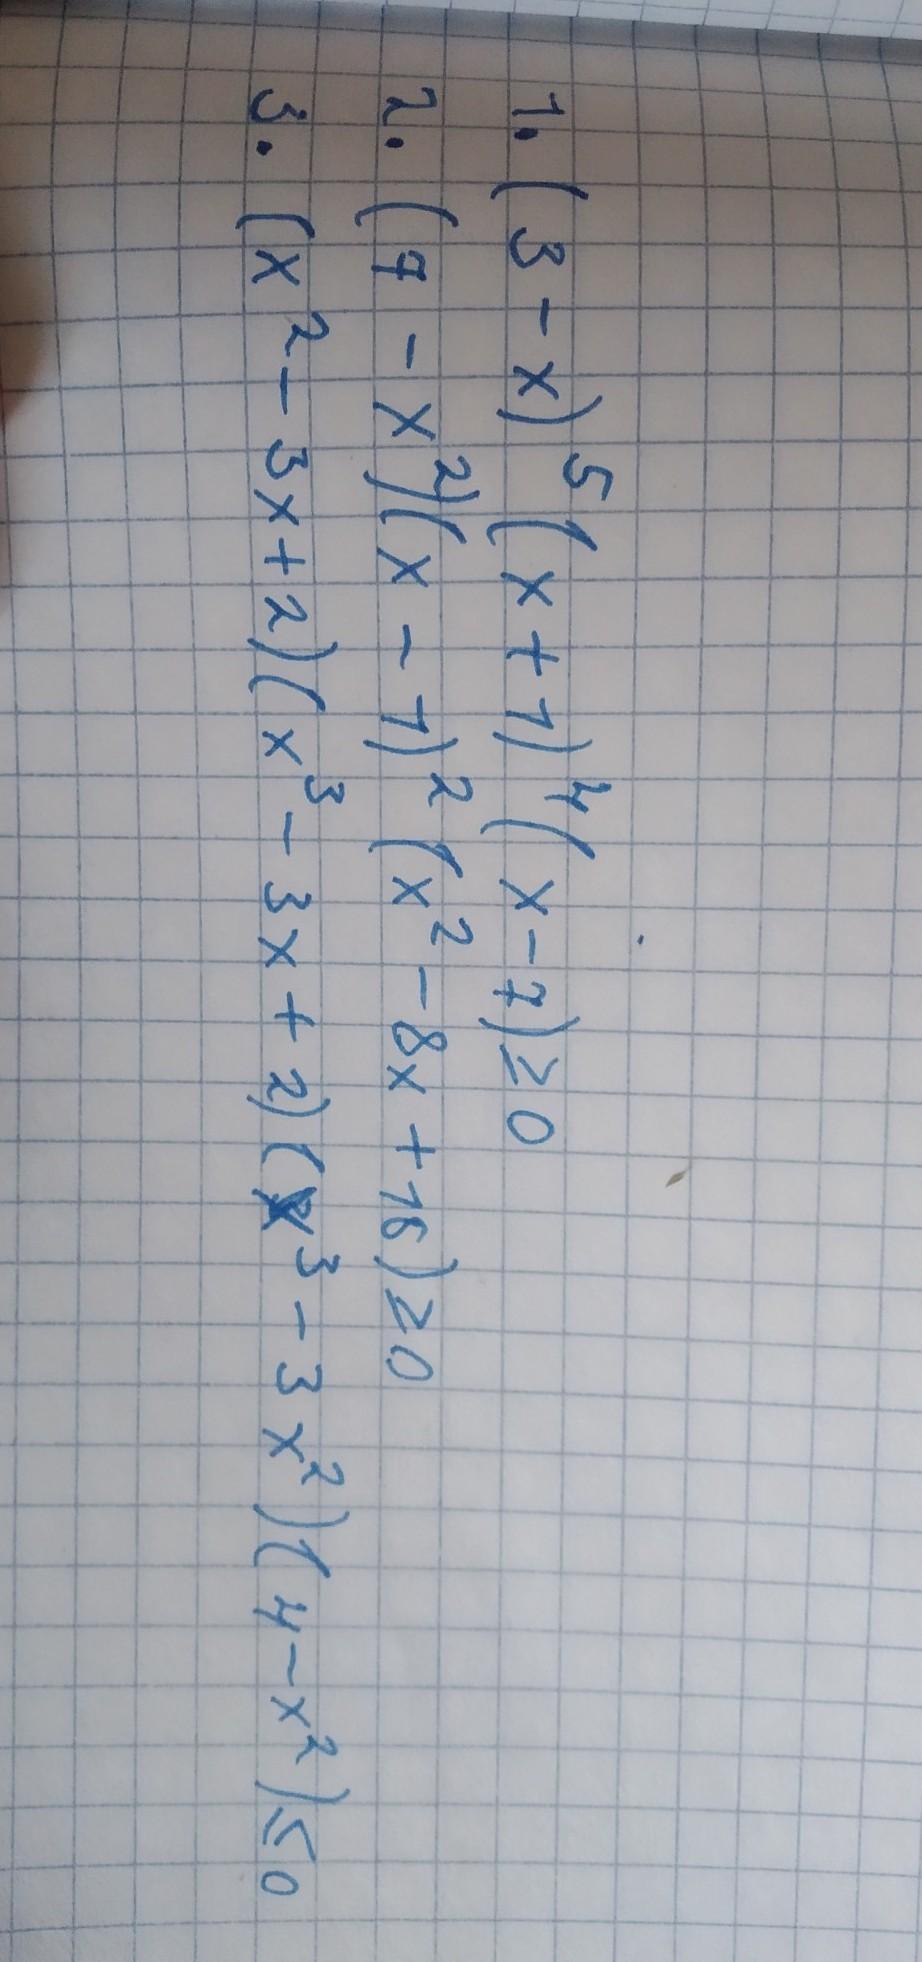 1. (3-x)⁵(x+1)⁴(x-7)≥0
2. (7-x²)(x-1)²(x²-8x+16)≥0
3. (x²-3x+2)(x³-3x+2)(x³-3x²)(4-x²)≤0